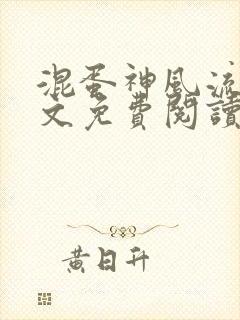 混蛋神風流
文免費閱讀
黃日升